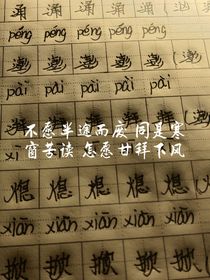 涌 涌 涌 涌 (涌
péng péng péng péng
澎 澎 澎 澎 (澎
pài pài pài pài
不愿半途而废 同是寒
窗苦读 怎愿甘拜下风
xī
熄 熄 熄 熄
xiān xiān xiān
掀 掀 掀 掀